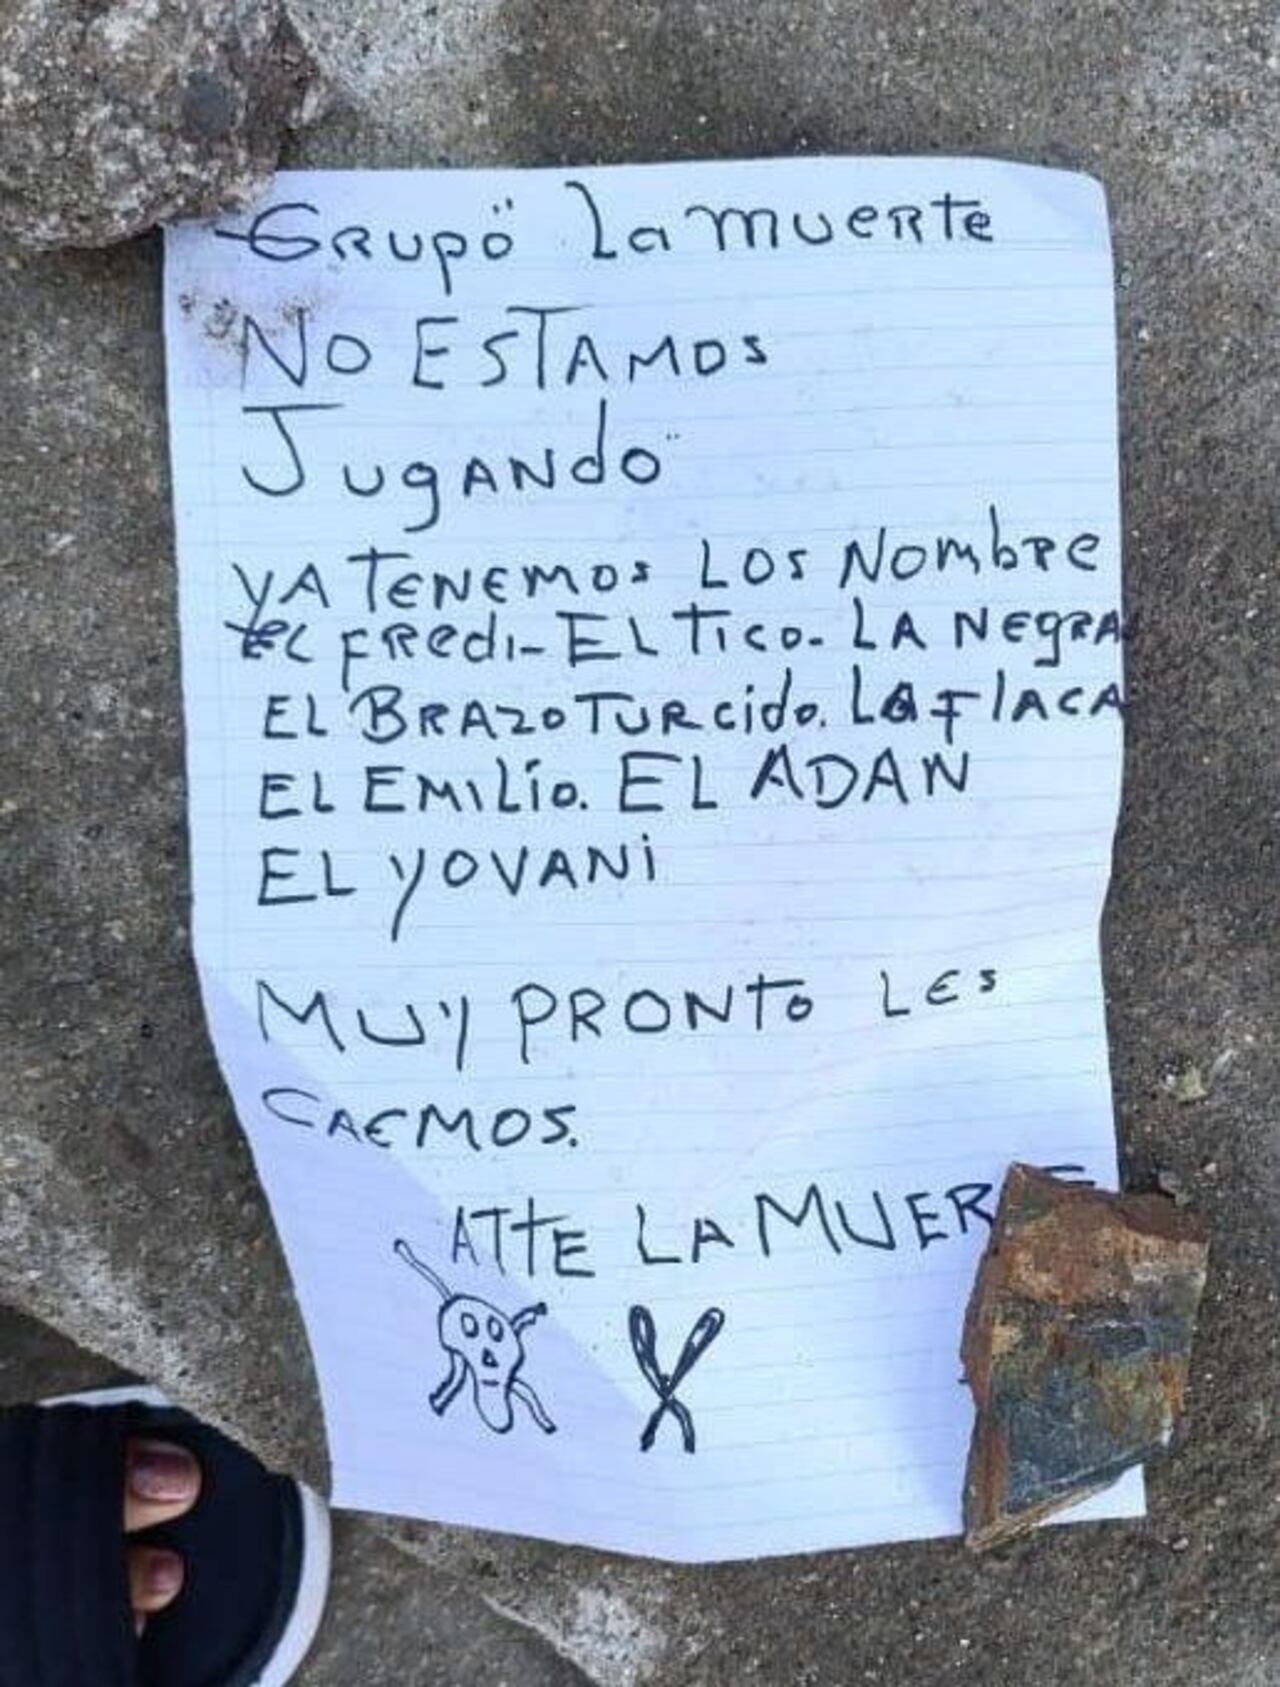 GRUPÖ La muerte
NO ESTAMOS
JUgANdÖ
YA TENEMOS LOS NOmbRe
eL FRedi-EL Tico-LA NegRA
EL BRAzo TURcido. La FlACA
EL EMiLio. EL ADAN
EL YOVANi
MUY PRONTO LES
CAEMOS.
ATTE LA MUER